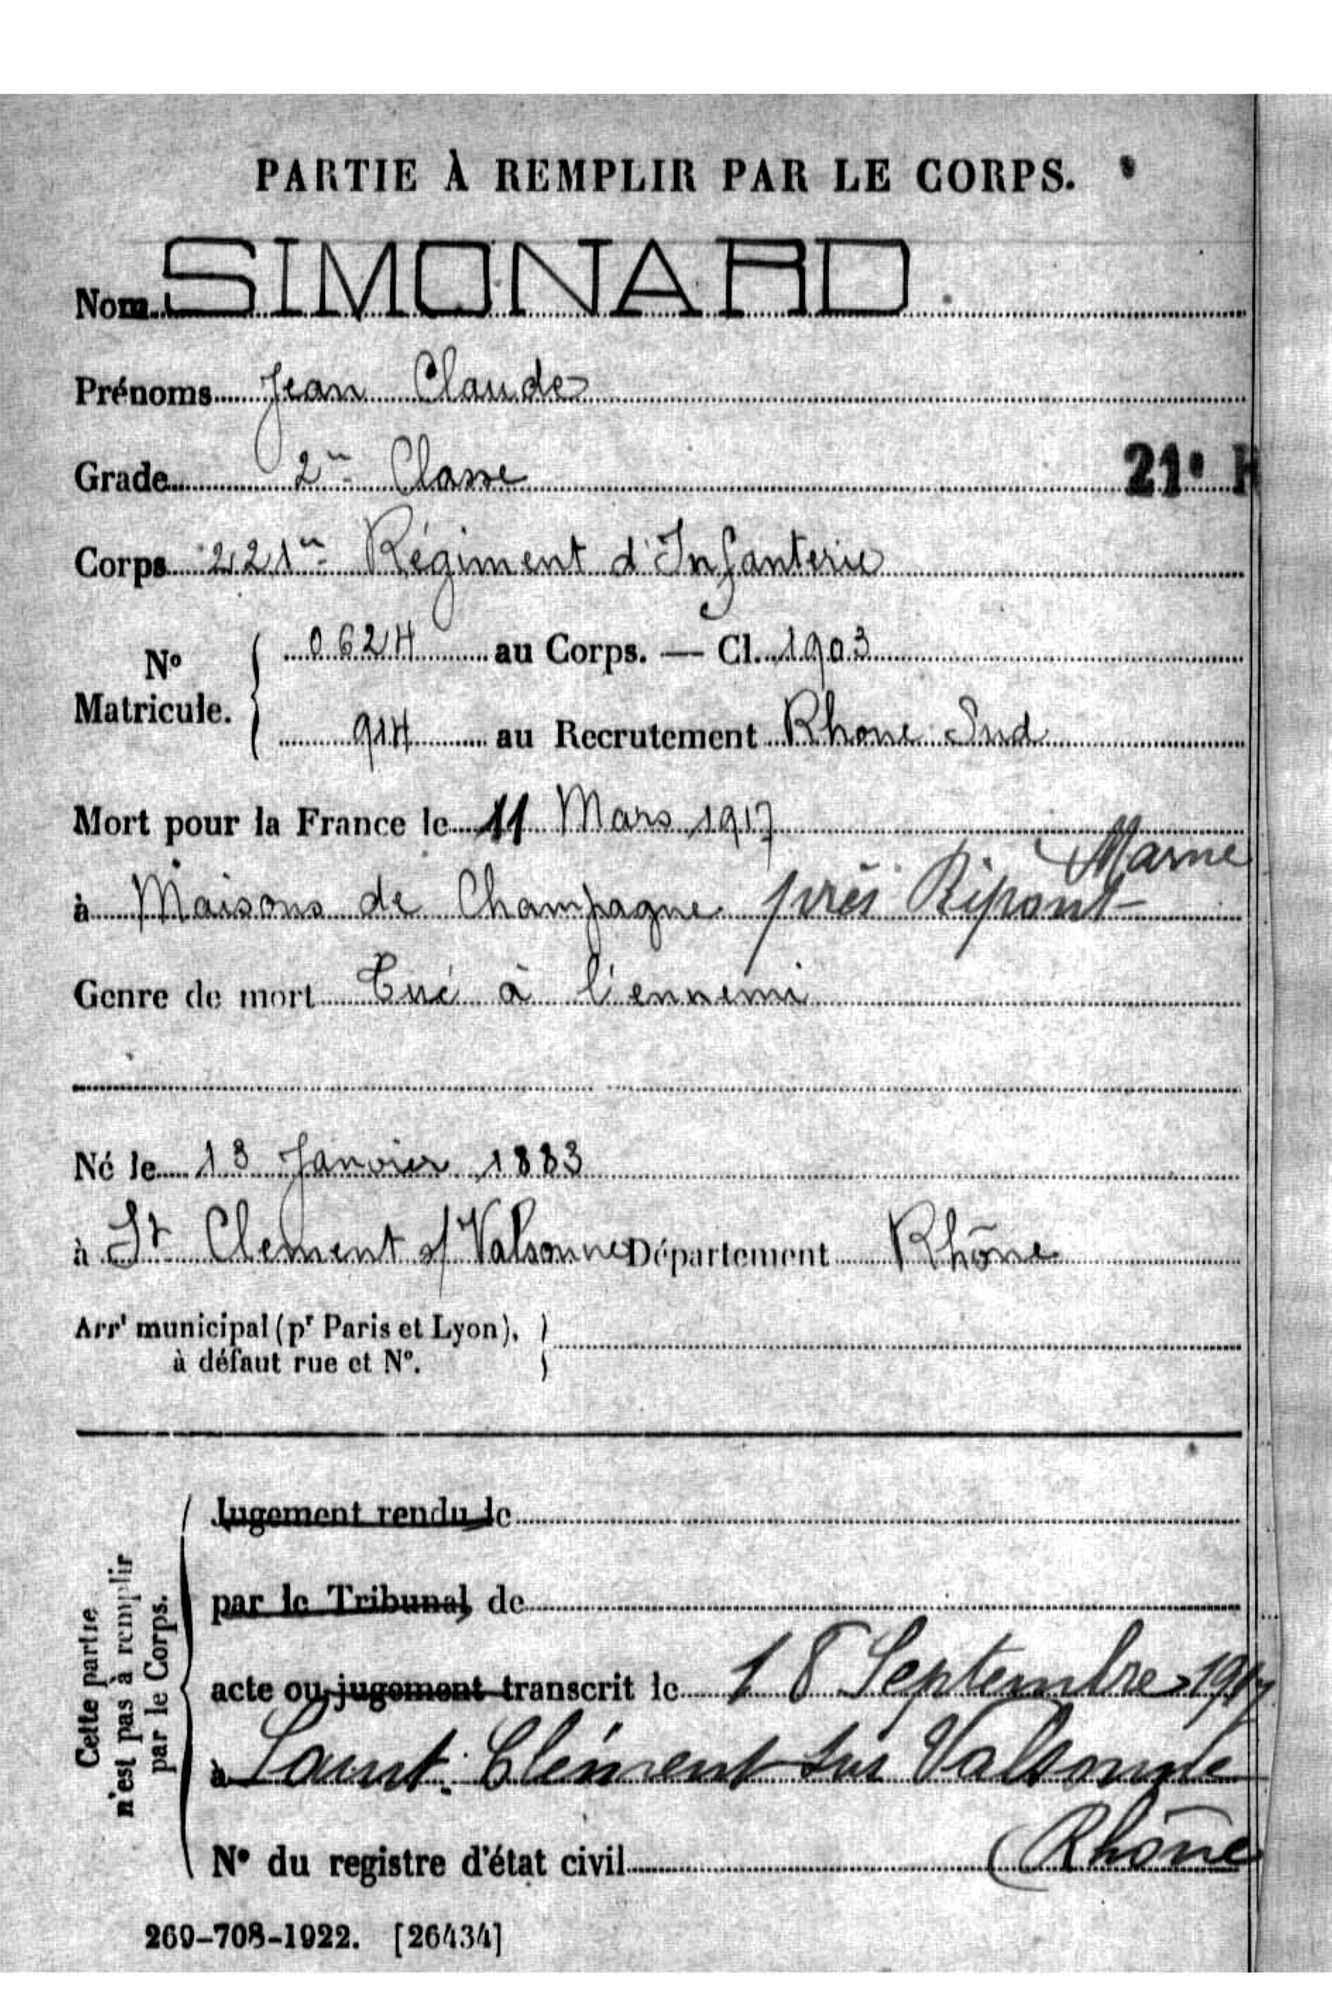 PARTIE À REMPLIR PAR LE CORPS.
Nom SIMONARD
Prénoms Jean Claude
Grade 2me Classe
21e
Corps 221me Régiment d'Infanterie
No Matricule. { 0624 au Corps. — Cl. 1903
914 au Recrutement Rhone Sud
Mort pour la France le 11 Mars 1917
Marne
à Maisons de Champagne près Ripont
Genre de mort Tué à l'ennemi
Né le 13 Janvier 1883
à St Clement s/ Valsonne Département Rhône
Arrt municipal (pr Paris et Lyon), }
à défaut rue et No.
Cette partie
n'est pas à remplir
par le Corps.
Jugement rendu le
par le Tribunal de
acte ou jugement transcrit le 18 Septembre 1917
à Saint. Clément sur Valsonne
(Rhône
No du registre d'état civil
269-708-1922. [26434]